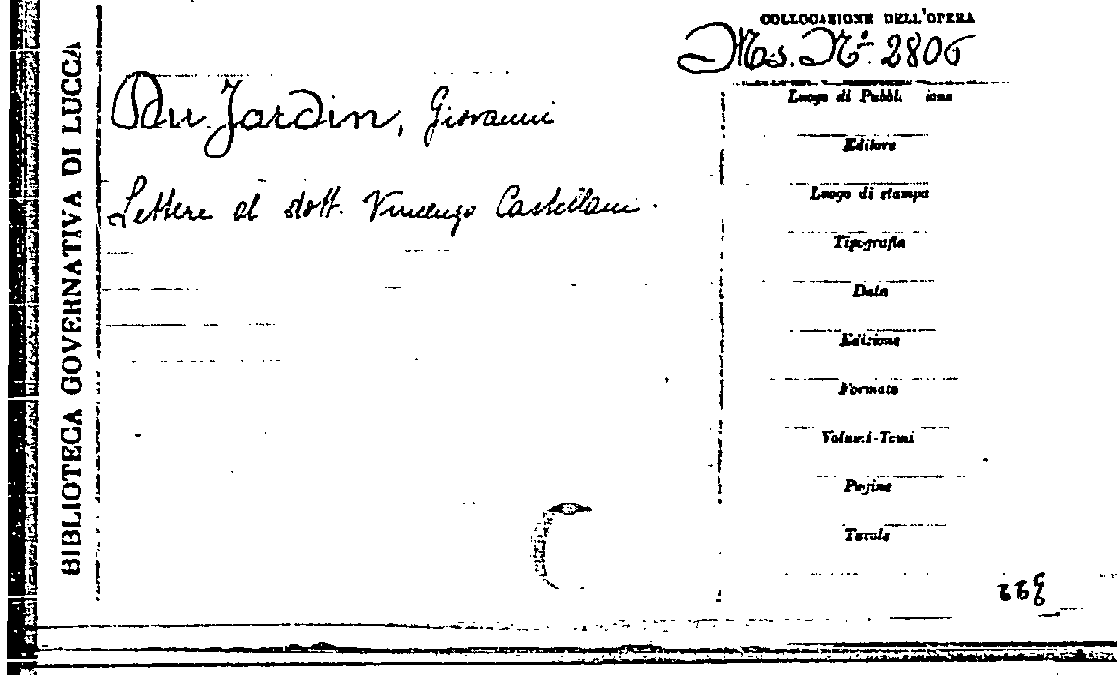 BIBLIOTECA GOVERNATIVA DI LUCCA
COLLOCAZIONE DELL'OPERA
Ms. N.º 2806
Du Jardin, Giovanni
Lettere al dott. Vincenzo Castellani.
Luogo di Pubbl. ione
Editore
Luogo di stampa
Tipografia
Data
Edizione
Formato
Volumi-Tomi
Pagine
Tavole